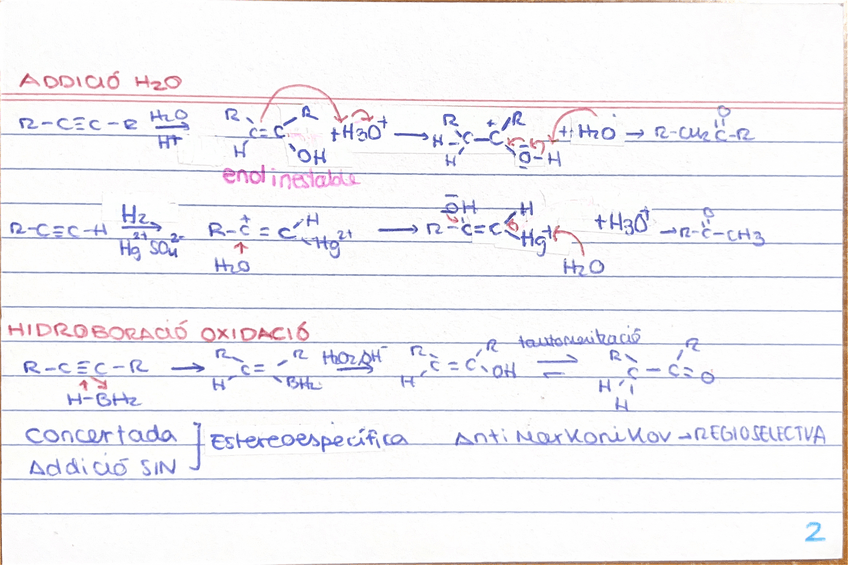 ADDICIÓ H2O
R-C≡C-R H2O H+ R H C=C R OH + H3O+ → R H-C-C+ R H O-H + H2O → R-CH2-C-R O
enol inestable
R-C≡C-H H2 Hg2+ SO42- R-C+=C H Hg2+ → OH R-C=C H Hg+ + H3O+ → R-C-CH3 O
H2O H2O
HIDROBORACIÓ OXIDACIÓ
R-C≡C-R → R H C=C R BH2 H2O2, OH- R H C=C R OH tautomerització R H-C-C=O R H
H-BH2
Concertada
Addició SIN
Estereoespecífica Anti Markonikov → REGIOSELECTIVA
2